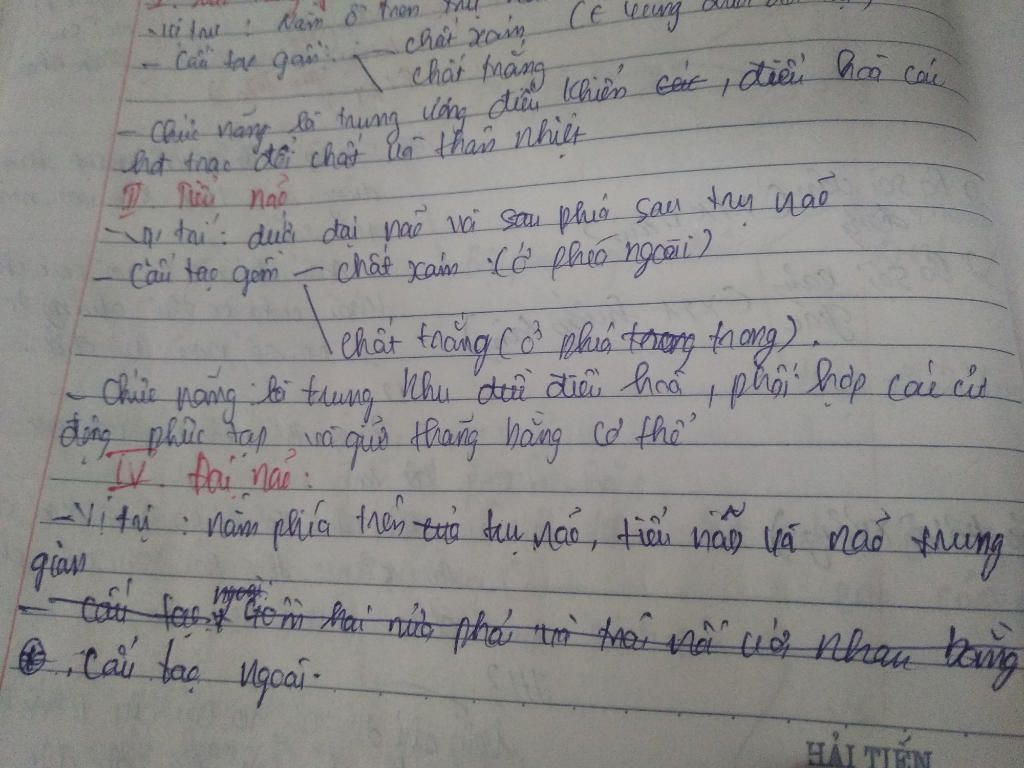 - Vị trí : Nằm ở trên trụ
- Cấu tạo gồm : - chất xám (
chất trắng
- Chức năng là trung ương điều khiển các, điều hoà các
hđ trạc đổi chất và thân nhiệt
III Tiểu não
- Vị tái : dưới đại não và sau phía sau trụ não
- Cấu tạo gồm - chất xám (ở phía ngoài)
chất trắng (ở phía trong trong).
- Chức năng là trung khu điều điều hoà, phối hợp các cử
động phức tạp và giữ thăng bằng cơ thể
IV. Đại não :
- Vị trí : nằm phía trên của trụ não, tiểu não và não trung
gian
- Cấu tạo ngoài gồm hai nửa phải và trái nối với nhau bằng
+, Cấu tạo ngoài.
HẢI TIẾN